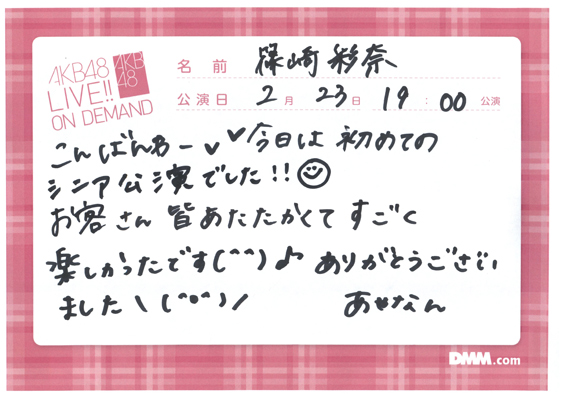 AKB48
LIVE!!
ON DEMAND
AKB
48
名前 篠崎彩奈
公演日 2月 23日 19:00 公演
こんばんわー♥♥今日は初めての
シニア公演でした!!☺
お客さん皆あたたかくてすごく
楽しかったです(^^)♪ありがとうござい
ました\(^o^)/ あやなん
DMM.com